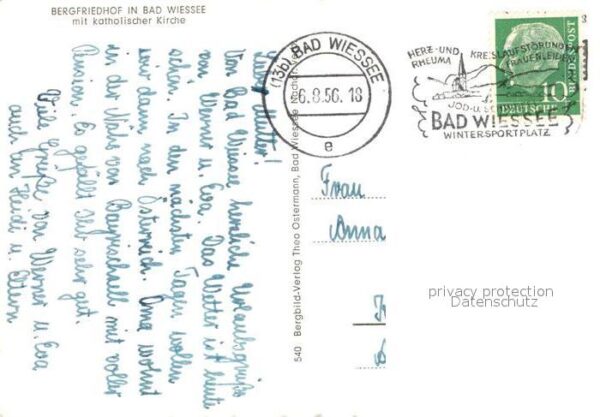 BERGFRIEDHOF IN BAD WIESSEE
mit katholischer Kirche
Liebe Mutter!
Von Bad Wiessee herzliche Urlaubsgrüße
von Werner u. Eva. Das Wetter ist heute
schön. In den nächsten Tagen wollen
wir dann nach Österreich. Oma wohnt
in der Nähe von Bayrischzell mit voller
Pension. Es gefällt sehr gut.
Viele Grüße von Werner u. Eva
auch an Heidi u. Eltern
540 Bergbild-Verlag Theo Ostermann, Bad Wiessee
(13b) BAD WIESSEE
6.8.56.18
e
HERZ- UND KREISLAUFSTÖRUNGEN
RHEUMA FRAUENLEIDEN
JOD- U.
BAD WIESSEE
WINTERSPORTPLATZ
10
DEUTSCHE BUNDESPOST
Frau
Anna
privacy protection
Datenschutz